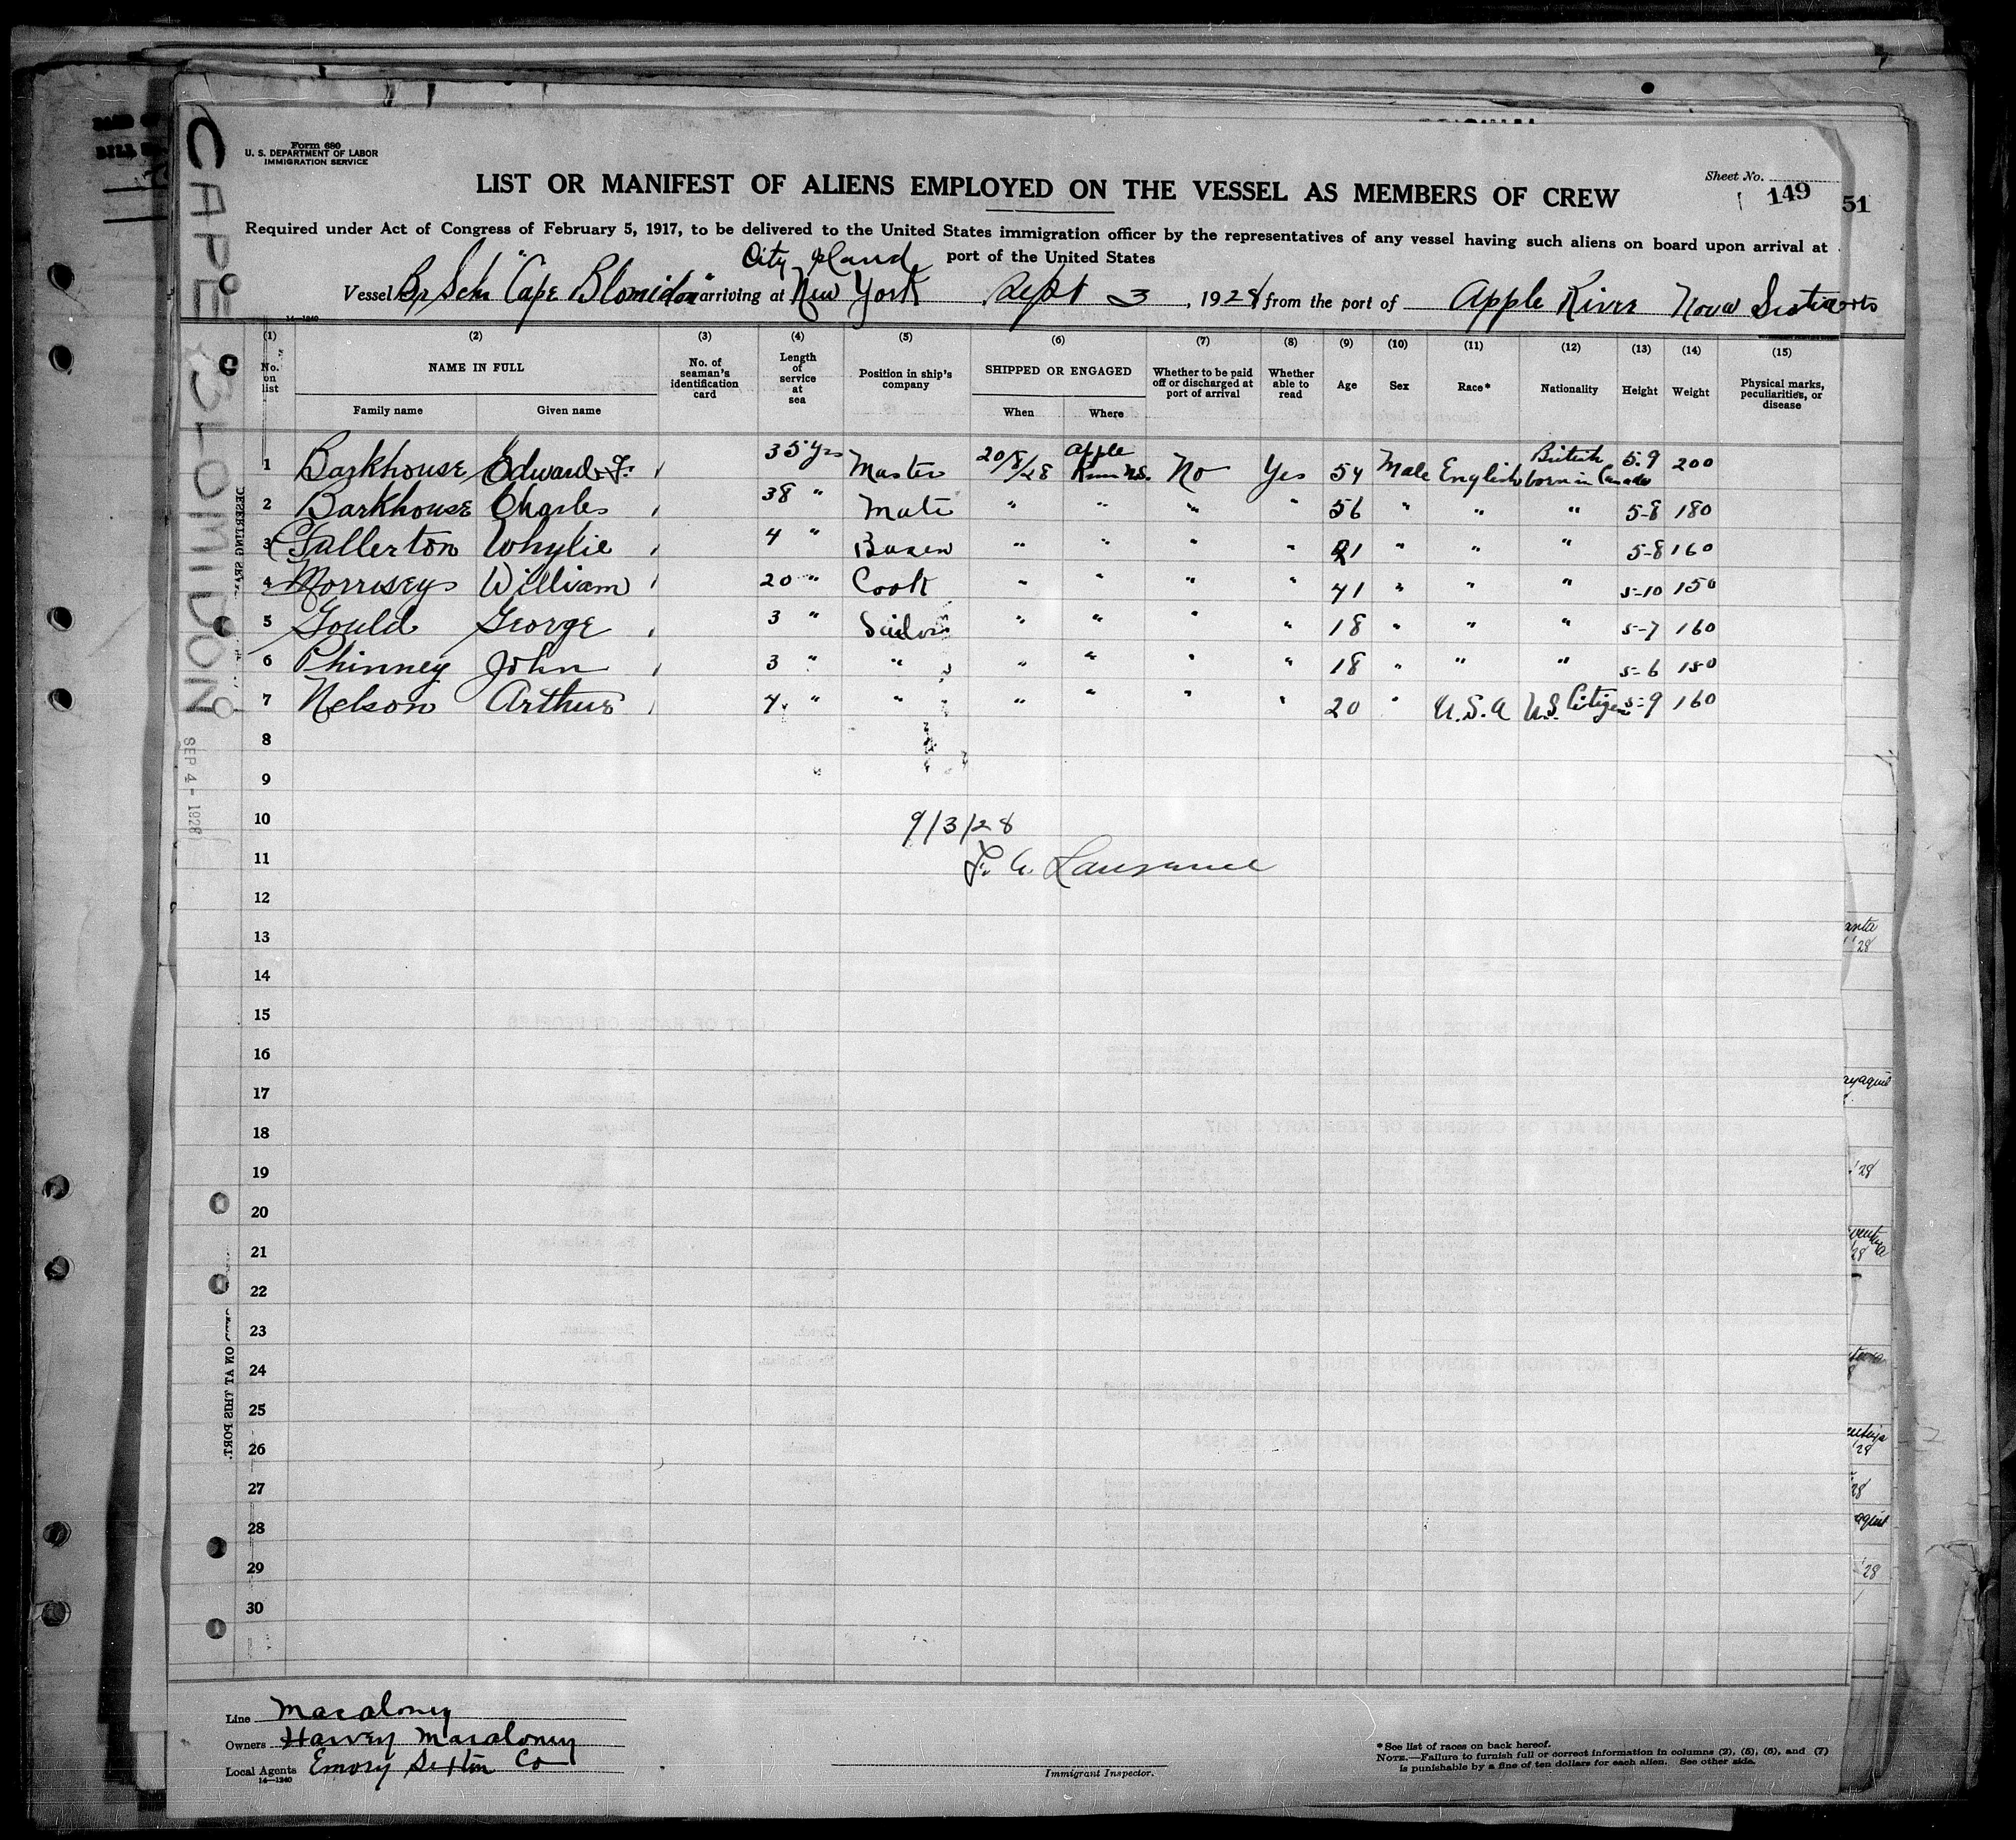 Form 680
U. S. DEPARTMENT OF LABOR
IMMIGRATION SERVICE
Sheet No.
149
51
LIST OR MANIFEST OF ALIENS EMPLOYED ON THE VESSEL AS MEMBERS OF CREW
Required under Act of Congress of February 5, 1917, to be delivered to the United States immigration officer by the representatives of any vessel having such aliens on board upon arrival at
City Island port of the United States
Vessel Br Schr "Cape Blomidon" arriving at New York Sept 3, 1928 from the port of Apple River Nova Scotia
14—1240
(1) (2) (3) (4) (5) (6) (7) (8) (9) (10) (11) (12) (13) (14) (15)
No. on list NAME IN FULL Family name Given name No. of seaman's identification card Length of service at sea Position in ship's company SHIPPED OR ENGAGED When Where Whether to be paid off or discharged at port of arrival Whether able to read Age Sex Race* Nationality Height Weight Physical marks, peculiarities, or disease
1 Barkhouse Edward F. 35 yrs Master 20/8/28 Apple River N.S. No Yes 54 Male English British born in Canada 5-9 200
2 Barkhouse Charles 38 " Mate " " " " 56 " " " 5-8 180
3 Fullerton Whylie 4 " " " " " 21 " " " 5-8 160
4 Morriseys William 20 " Cook " " " " 41 " " " 5-10 150
5 Gould George 3 " Sailor " " " " 18 " " " 5-7 160
6 Phinney John 3 " " " " " " 18 " " " 5-6 150
7 Nelson Arthur 4 " " " " " " 20 " U.S.A U.S. Citizen 5-9 160
8
9
10 9/3/28
11
12
13
14
15
16
17
18
19
20
21
22
23
24
25
26
27
28
29
30
CAPE BLOMIDON
SEP 4 - 1928
ON AT THIS PORT.
Line Macaloney
Owners Harvey Macaloney
Local Agents Emory Sexton Co
14—1240
Immigrant Inspector.
*See list of races on back hereof.
NOTE.—Failure to furnish full or correct information in columns (2), (5), (6), and (7)
is punishable by a fine of ten dollars for each alien. See other side.